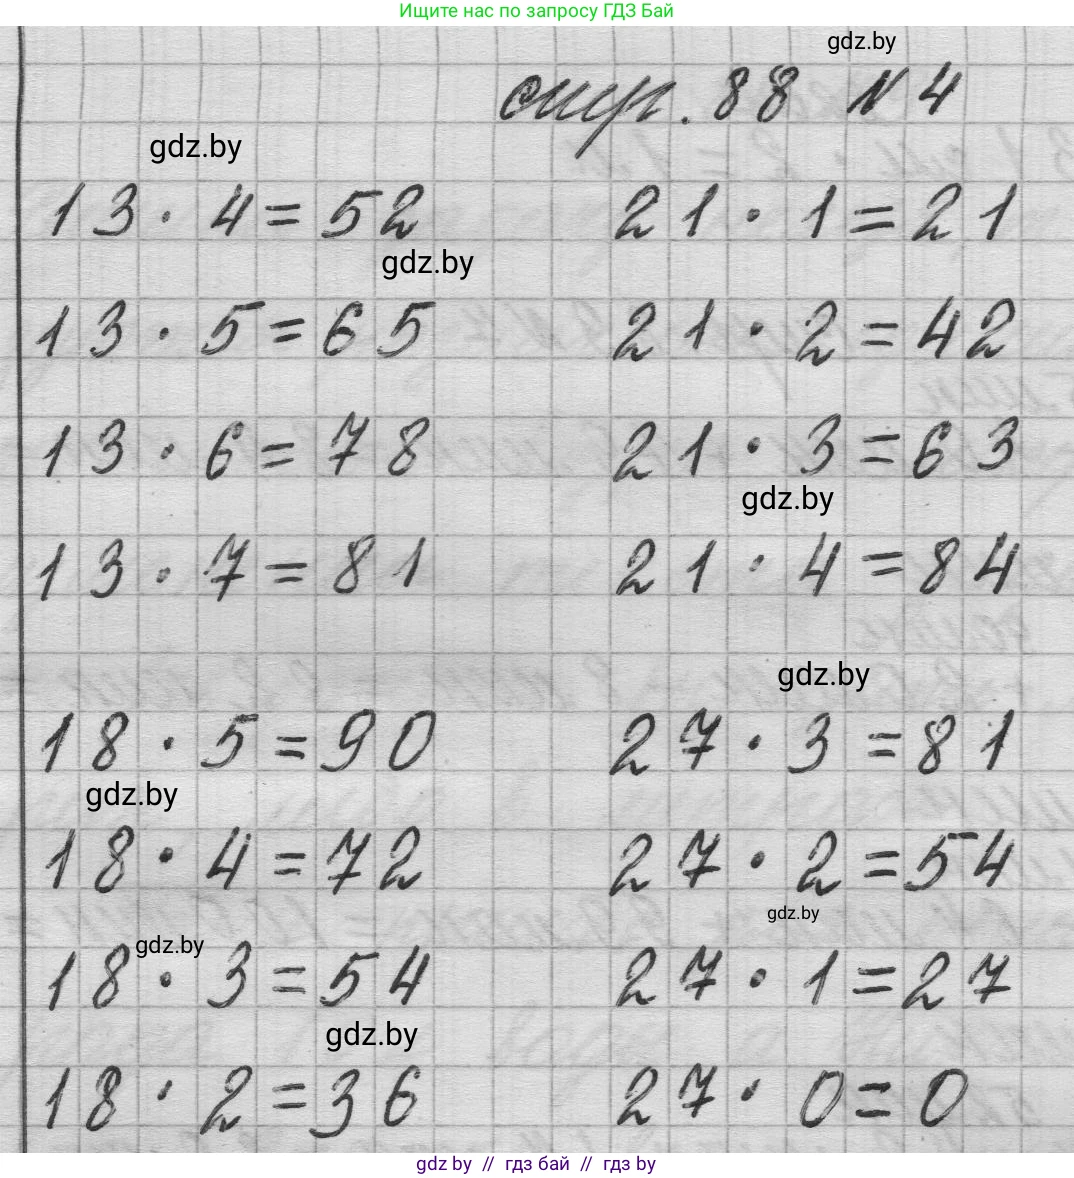 Ищите нас по запросу ГДЗ Бай
gdz.by
стр. 88 № 4
gdz.by
13 · 4 = 52 21 · 1 = 21
gdz.by
13 · 5 = 65 21 · 2 = 42
13 · 6 = 78 21 · 3 = 63
gdz.by
13 · 7 = 81 21 · 4 = 84
gdz.by
18 · 5 = 90 27 · 3 = 81
gdz.by
18 · 4 = 72 27 · 2 = 54
gdz.by
gdz.by
18 · 3 = 54 27 · 1 = 27
gdz.by
18 · 2 = 36 27 · 0 = 0
gdz by // гдз бай // гдз by